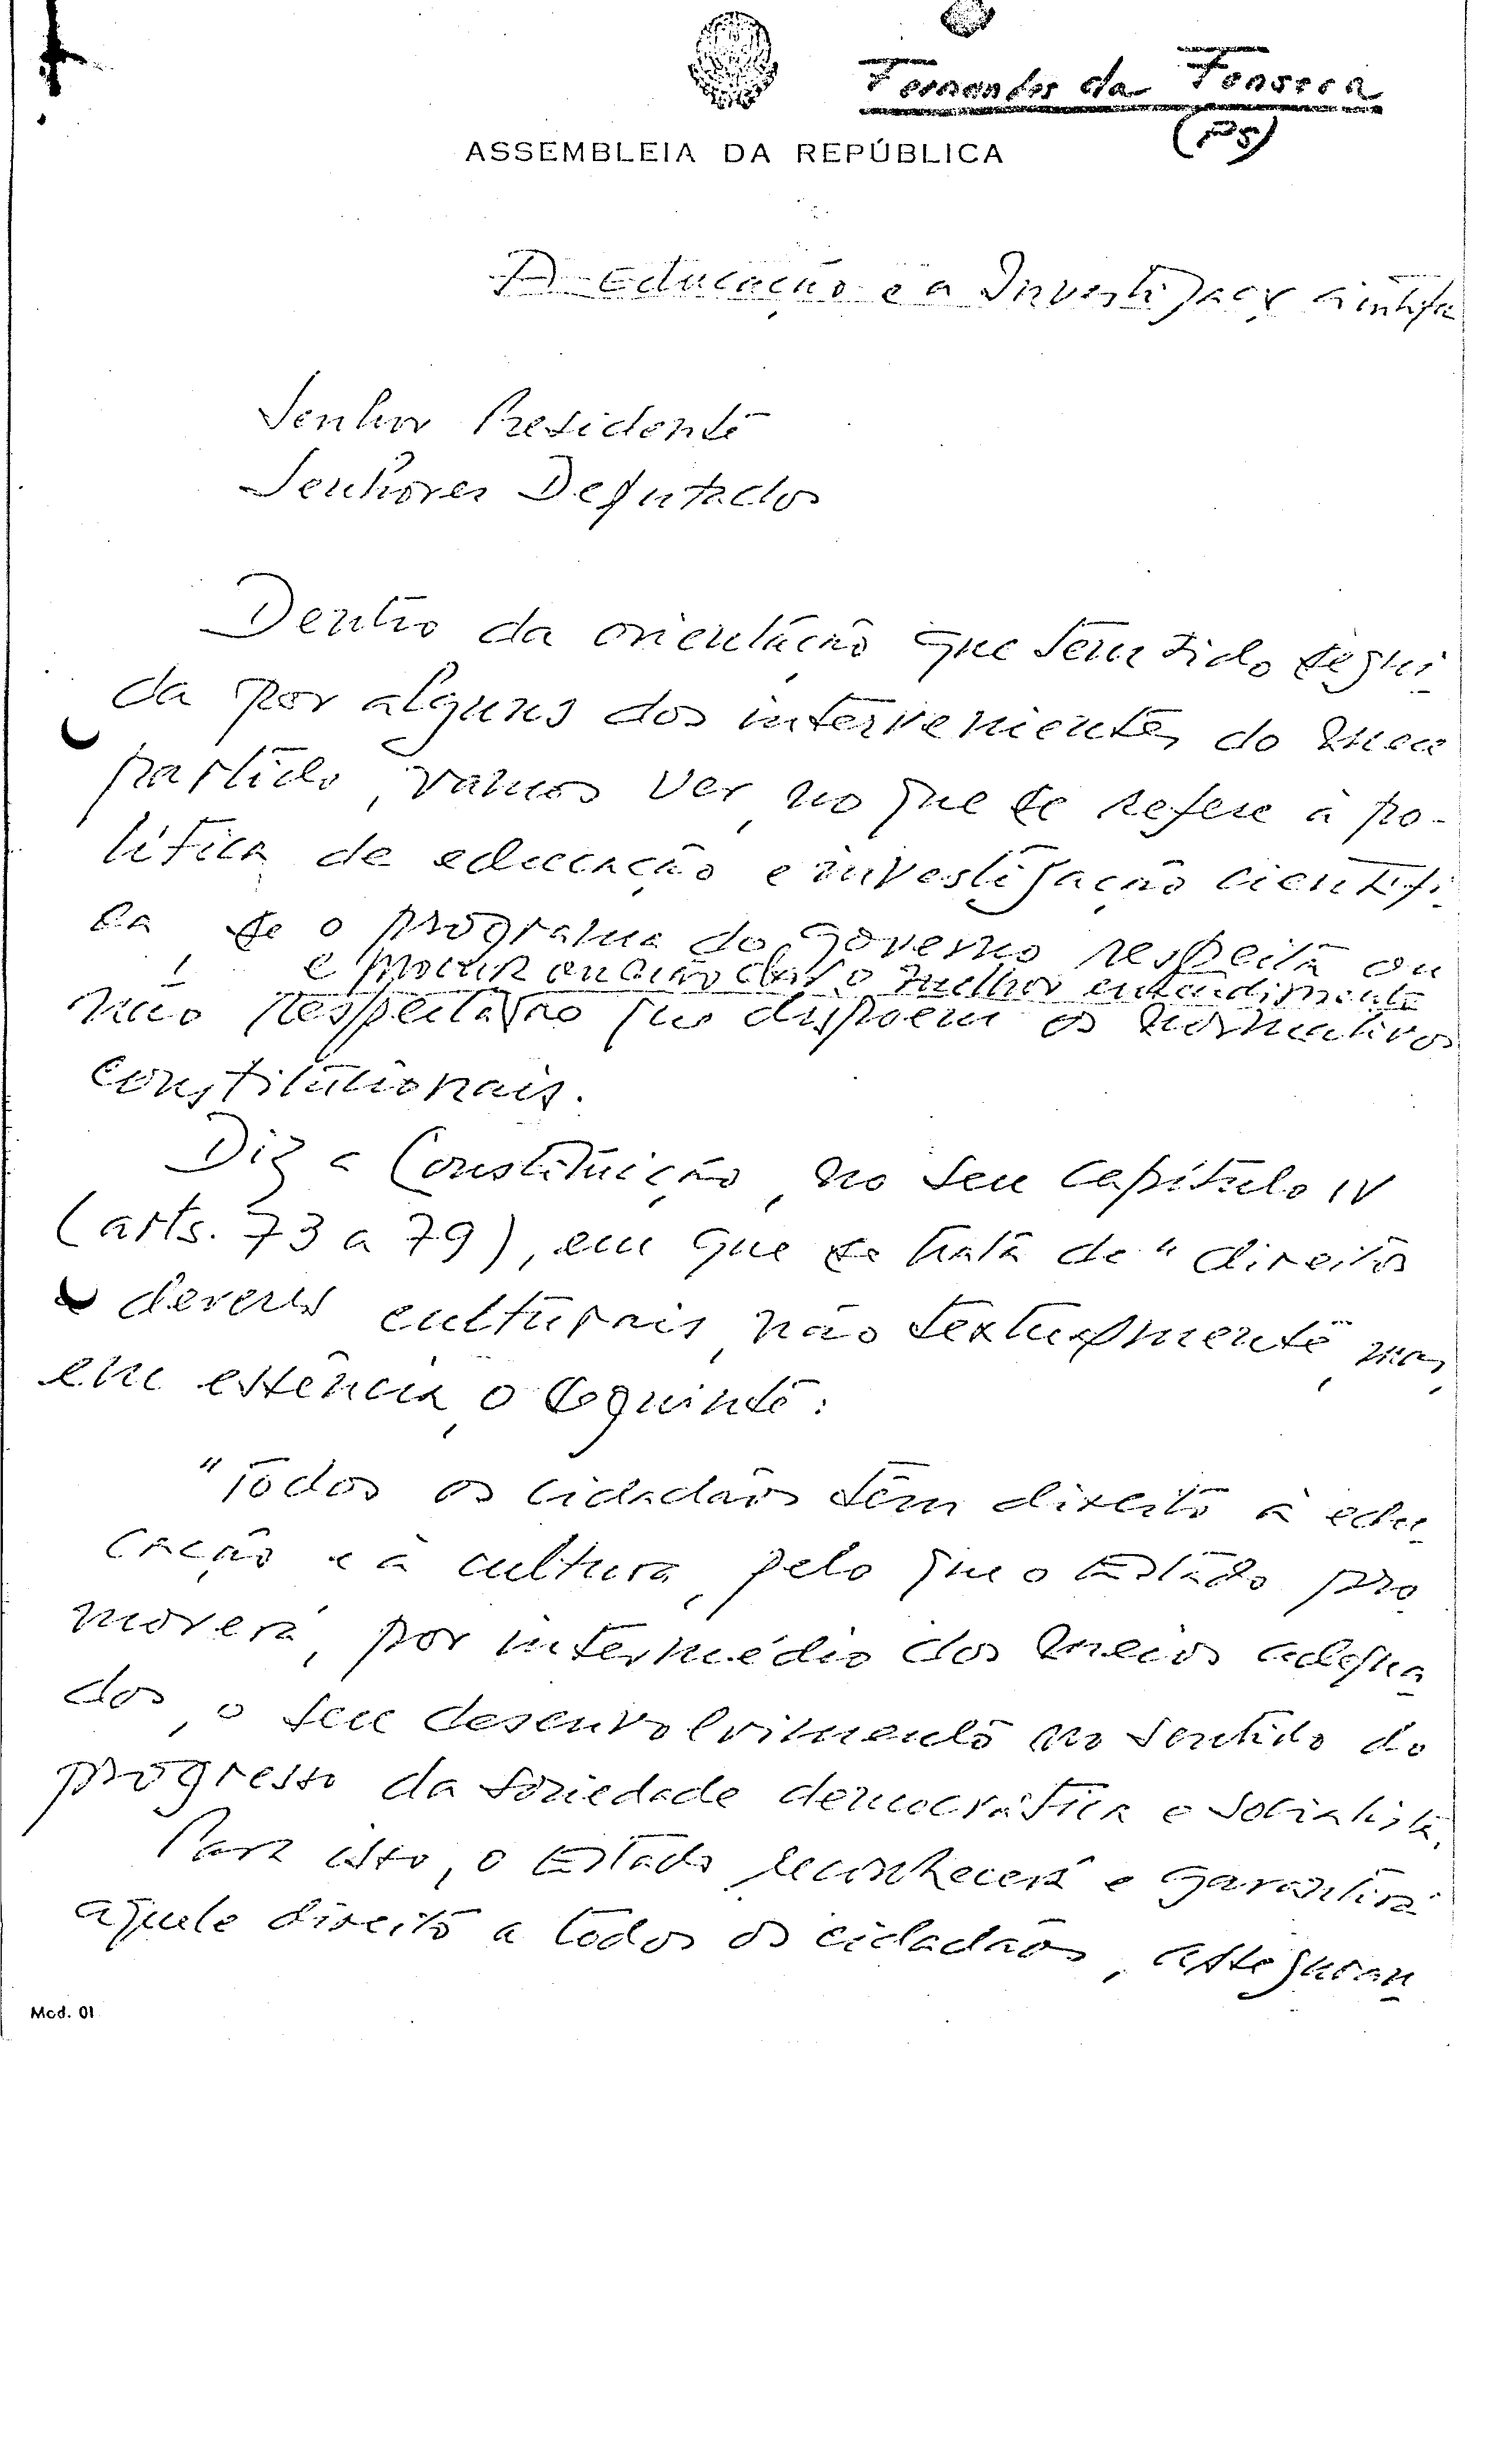 Fernandes da Fonseca
(PS)
ASSEMBLEIA DA REPÚBLICA
A Educação e a Investigação científica
Senhor Presidente
Senhores Deputados
Dentro da orientação que tem sido segui-
da por alguns dos intervenientes do meu
partido, vamos ver, no que se refere à po-
lítica de educação e investigação científi-
ca, se o programa do governo respeita ou
e procura ou não dar o melhor entendimento
não respeita ao que dispoem os normativos
constitucionais.
Diz a Constituição, no seu capítulo IV
(arts. 73 a 79), em que se trata de "direitos
e deveres culturais, não textualmente, mas,
em essência, o seguinte:
"Todos os cidadãos têm direito à edu-
cação e à cultura, pelo que o Estado pro
moverá, por intermédio dos meios adequa
dos, o seu desenvolvimento no sentido do
progresso da sociedade democrática e socialista.
Para isso, o Estado reconhecerá e garantirá
aquele direito a todos os cidadãos, asseguran
Mod. 01